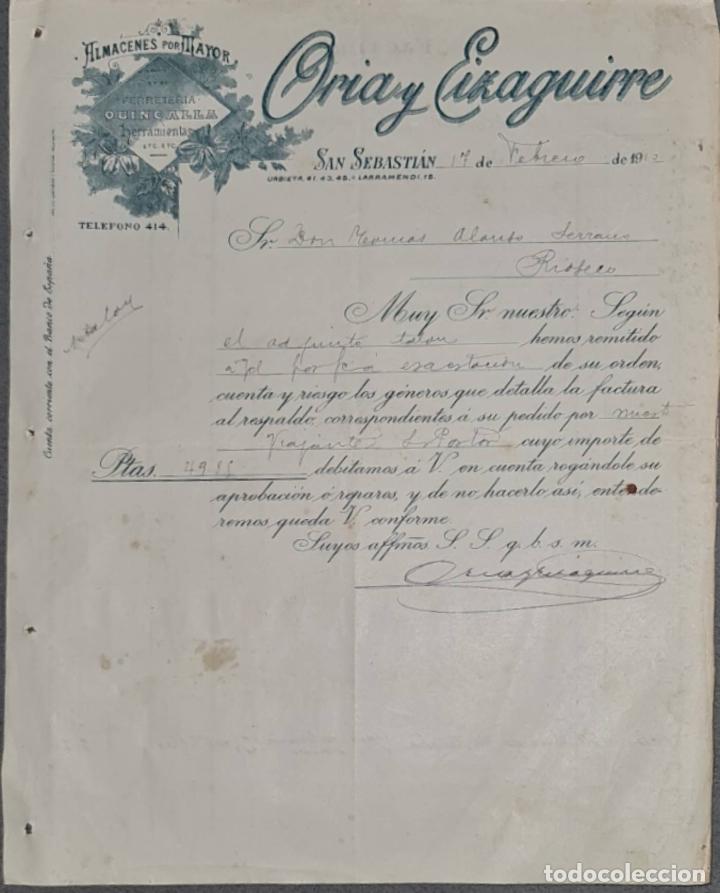 ALMACENES POR MAYOR
FERRETERIA
QUINCALLA
Herramientas
ETC. ETC.
TELEFONO 414.
Cuenta corriente con el Banco de España.
Oria y Eizaguirre
SAN SEBASTIÁN 17 de Febrero de 1912
URBIETA, 41, 43, 45. LARRAMENDI, 15.
Sr. Don Alonso Serrano
Rioseco
Muy Sr. nuestro: Según
el adjunto talon hemos remitido
de su orden,
cuenta y riesgo los géneros que detalla la factura
al respaldo, correspondientes á su pedido por
Viajante Sr Pastor cuyo importe de
Ptas. debitamos á V. en cuenta rogándole su
aprobación ó reparos, y de no hacerlo así, enten-de-
remos queda V. conforme.
Suyos affmos S. S. q. b. s. m.
Oria y Eizaguirre
todocoleccion.net